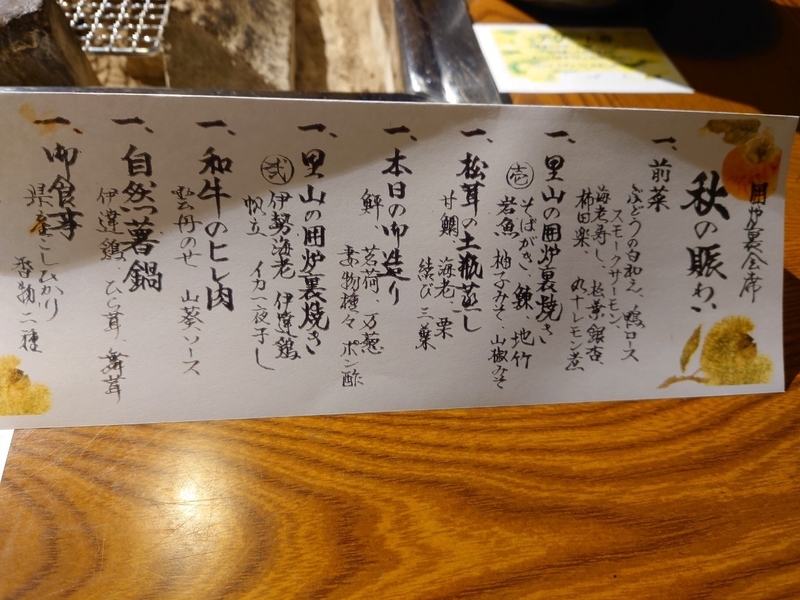 囲炉裏会席
秋の賑わい
一、前菜
ぶどうの白和え、鴨ロース
スモークサーモン、
海老寿し、松葉銀杏、
柿田楽、丸十レモン煮
一、里山の囲炉裏焼き
壱 そばがき、鰊 地竹
岩魚 柚子みそ、山椒みそ
一、松茸の土瓶蒸し
甘鯛 海老 栗
結び三葉
一、本日の御造り
鮃 茗荷 万葱
妻物種々 ポン酢
一、里山の囲炉裏焼き
弐 伊勢海老 伊達鶏
帆立 イカ一夜干し
一、和牛のヒレ肉
雲丹のせ 山葵ソース
一、自然薯鍋
伊達鶏 ひら茸 舞茸
一、御食事
県産こしひかり
香物二種